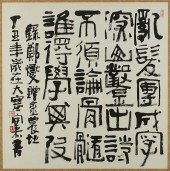 亂髮團成字
深山鑿出詩
不須論骨髓
誰得學其皮
錄鄭燮贈金農
丁丑年歲在大寒 書